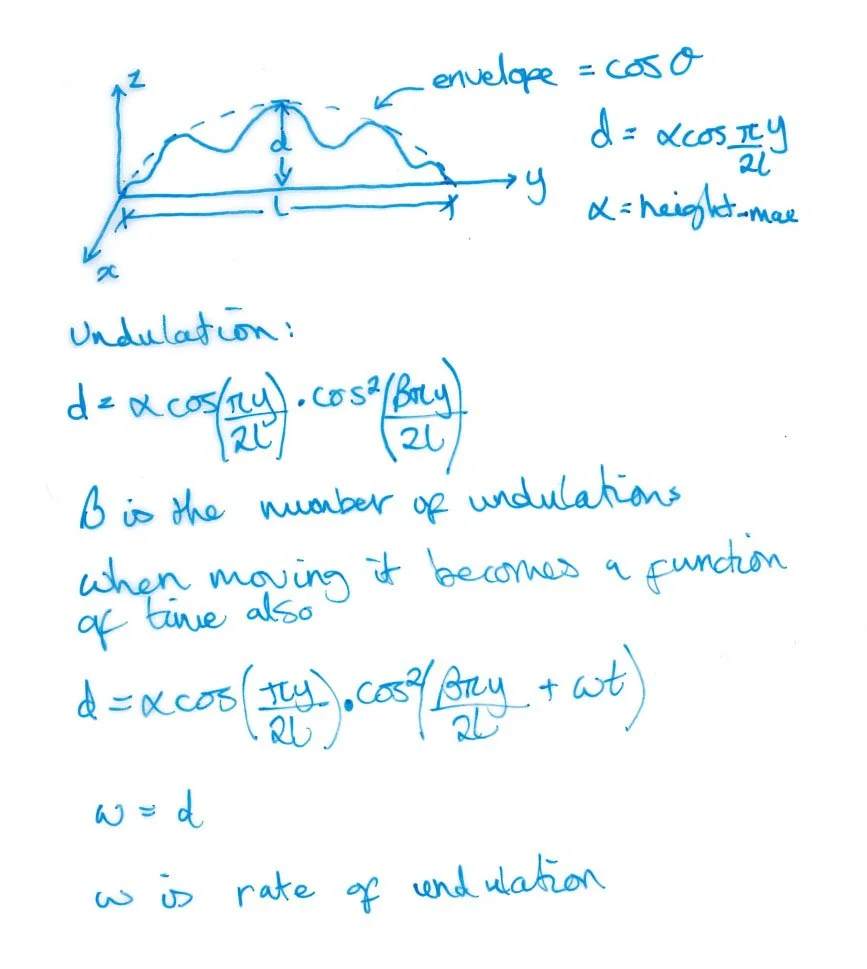 z
envelope = cos θ
d
d = α cos πy/2l
y
L
α = height-max
x
Undulation:
d = α cos(πy/2l) . cos²(βπy/2l)
β is the number of undulations
when moving it becomes a function
of time also
d = α cos(πy/2l) . cos²(βπy/2l + ωt)
ω = d
ω is rate of undulation